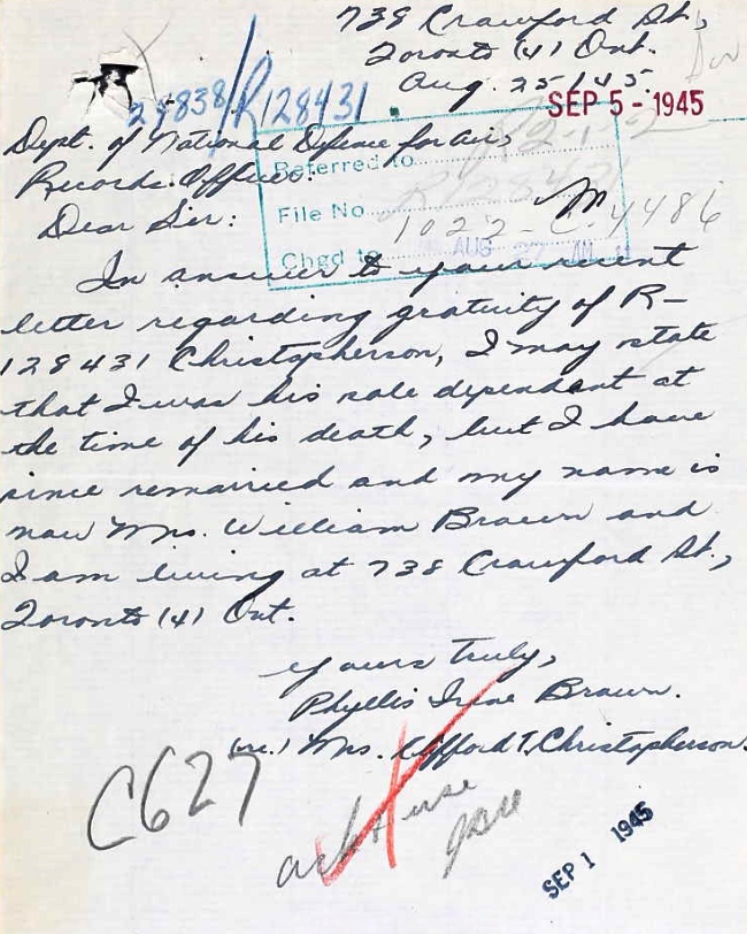 738 Crawford St.,
Toronto (4) Ont.
Aug. 25/45.
SEP 5 - 1945
28838/R128431
Dept. of National Defence for Air,
Records Officer.
Referred to
Dear Sir:
File No R128431
1022-C-4486
Chgd to AUG 27 AM
In answer to your recent
letter regarding gratuity of R-
128431 Christopherson, I may state
that I was his sole dependant at
the time of his death, but I have
since remarried and my name is
now Mrs. William Brown and
I am living at 738 Crawford St.,
Toronto (4) Ont.
Yours truly,
Phyllis Irene Brown.
(nee.) Mrs. Clifford T. Christopherson.
C627
SEP 1 1945